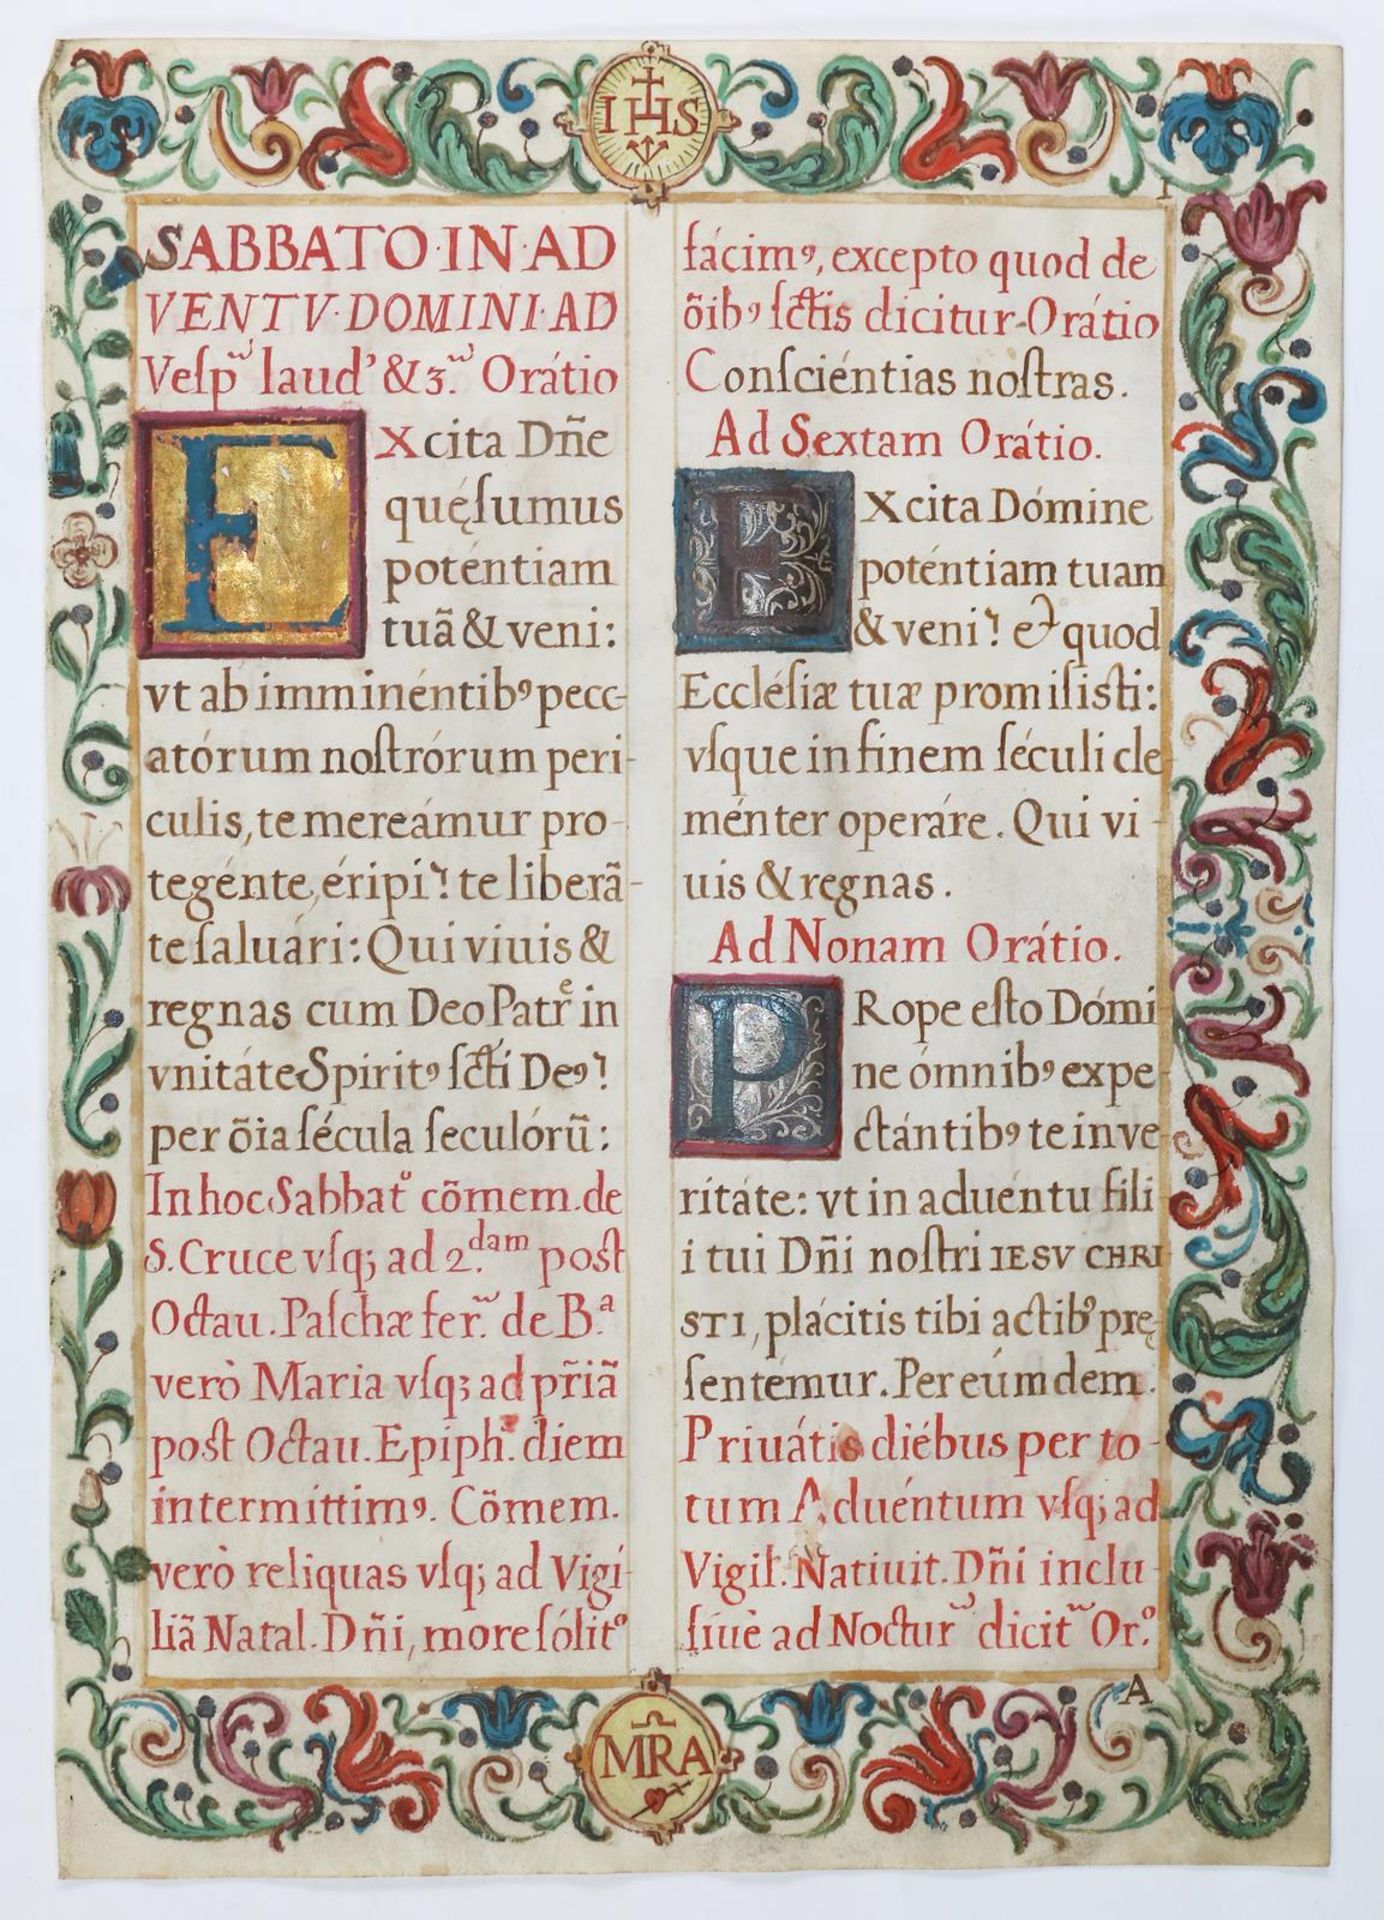 IHS
SABBATO·IN·AD
VENTV·DOMINI·AD
Veſp͠ laud’ & 3.͠ Orátio
EXcita Dñe
quęſumus
poténtiam
tuã & veni:
vt ab imminéntibꝰ pecc-
atórum noſtrórum peri-
culis, te mereámur pro-
tegénte, éripi⸵ te liberã-
te ſaluári: Qui viuis &
regnas cum Deo Patrͤ in
vnitáte Spiritꝰ ſcti Deꝰ⸵
per õia ſécula ſeculórũ:
In hoc Sabbatº cõmem. de
S. Cruce vſq; ad 2.dam post
Octau. Paſchæ fer.͠ de B.ª
verò Maria vſq; ad pr̃iã
post Octau. Epiph. diem
intermittimꝰ. Cõmem.
verò reliquas vſq; ad Vigi-
liã Natal. Dñi, more ſólitº
fácimꝰ, excepto quod de
õibꝰ ſctis dicitur-Orátio
Conſciéntias noſtras.
Ad Sextam Orátio.
EXcita Dómine
poténtiam tuam
& veni⸵ et quod
Eccléſiæ tuæ promiſisti:
vſque in finem ſéculi cle-
ménter operáre. Qui vi-
uis & regnas.
Ad Nonam Orátio.
PRope eſto Dómi-
ne ómnibꝰ expe-
ctántibꝰ te in ve-
ritáte: vt in aduéntu fili
i tui Dñi noſtri IESV CHRI
STI, plácitis tibi actibꝰ prę-
ſentémur. Per eúmdem.
Priuátis diébus per to-
tum Aduéntum vſq; ad
Vigil. Natiuit. Dñi inclu-
ſiuè ad Nocturͫ dicit͠ Orº.
A
MRA